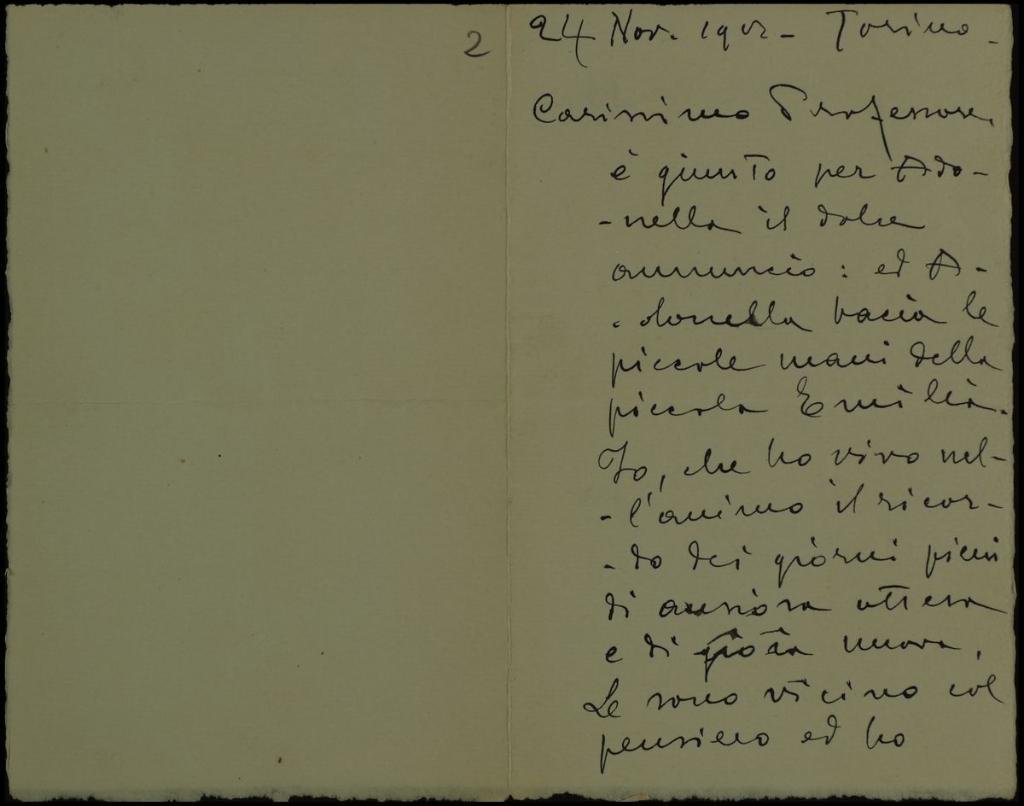 2
24 Nov. 1902 - Torino -
Carissimo Professore,
è giunto per Ado-
-nella il dolce
annuncio: ed A-
-donella bacia le
piccole mani della
piccola Emilia.
Io, che ho vivo nel-
-l'animo il ricor-
-do dei giorni pieni
di ansiosa attesa
e di gioia nuova,
Le sono vicino col
pensiero ed ho